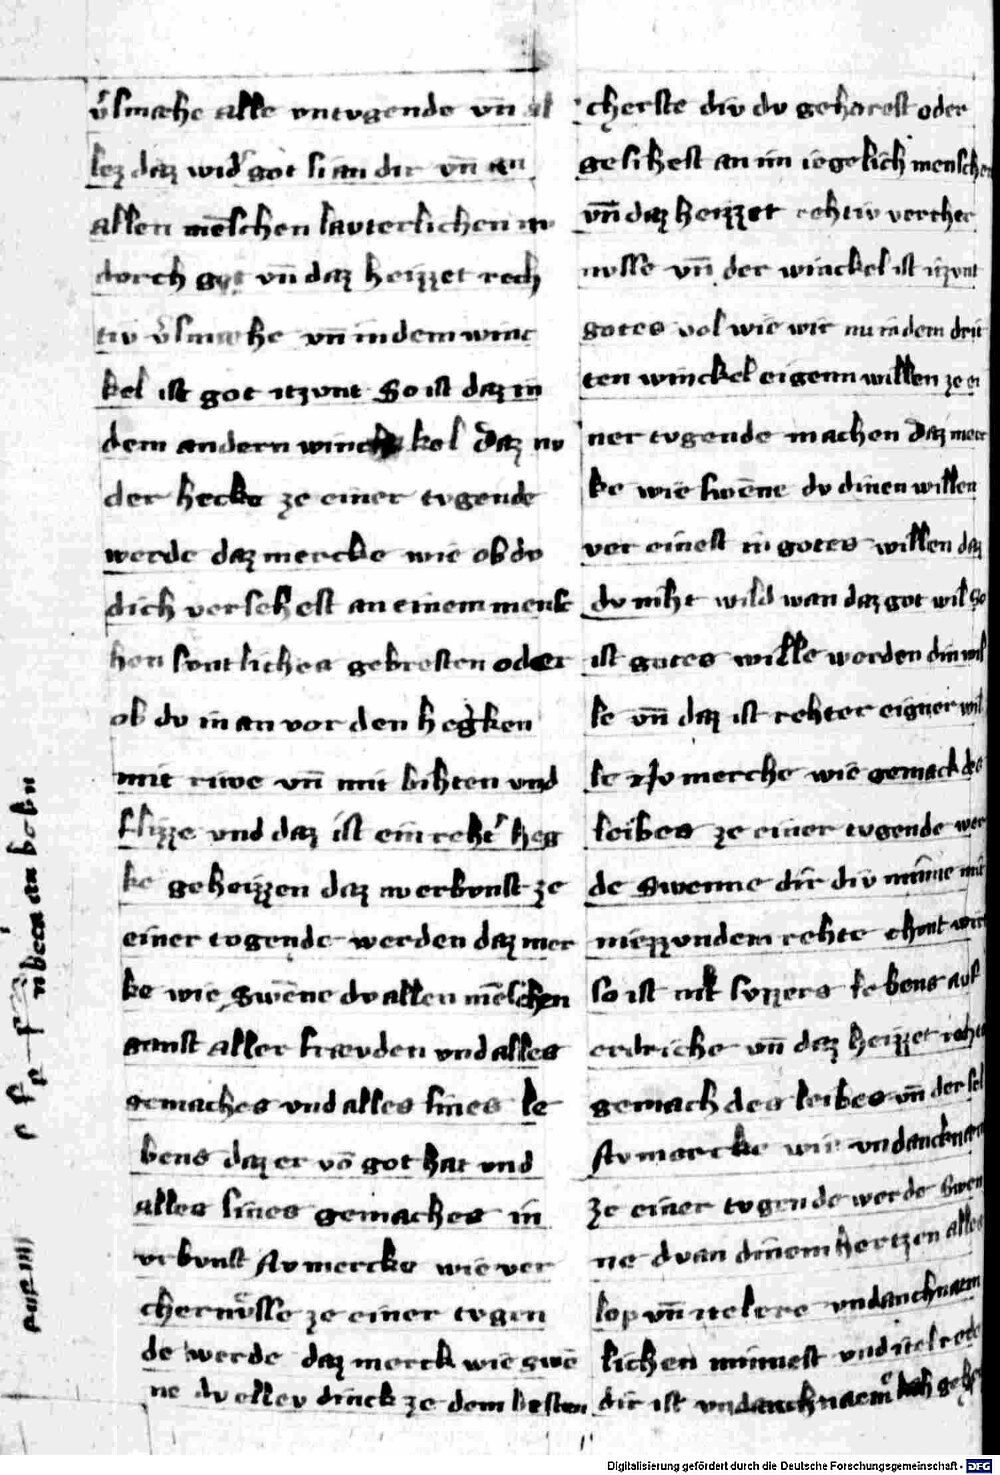 v͛smæhe alle vntvgende vn̄ al
lez daz wid͛ got si an dir vn̄ an
allen mēschen lavterlichen nv
dorch got vn̄ daz heizzet rech
tiv v͛smæhe vn̄ in dem winc
kel ist got itzvnt So ist daz in
dem andern winc kel daz nv
der hecke ze einer tvgende
werde daz mercke wie ob dv
dich versehest an einem mensc
hen svntliches gebresten oder
ob dv in an vor den hegken
mit riwe vn̄ mit bihten vnd
flizze vnd daz ist ein reht͛ heg
ke geheizzen daz nv erbvnst ze
einer togende werden daz mer
ke wie Swēne dv allen mēschen
ganst aller frævden vnd alles
gemaches vnd alles sines le
bens daz er vō got hat vnd
alles sines gemaches in
vrbvnst Nv mercke wie ver
chernvͤsse ze einer tvgen
de werde daz merck wie swē
ne dv ellev dinck ze dem besten
cherste div dv gehorest oder
gesihest an im iegelich menschen
vn̄ daz heizzet rehtiv vercher
nvsse vn̄ der winckel ist itzvnt
gotes vol wie wir nu in dem drit
ten winckel eigenn willen ze ei
ner tvgende machen Daz merc
ke wie swēne dv dinen willen
ver einest in gotes willen daz
dv niht wild wan daz got wil So
ist gotes wille worden din wil
le vn̄ daz ist rehter eigner wil
le Nv merche wie gemack des
leibes ze einer tvgende wer
de Swenne dir div minne mit
niezzvndem rehte chont wirt
so ist nit svzzers lebens auf
erdriche vn̄ daz heizzet rehte
gemach des leibes vn̄ der sel
Nv mercke wie vndancknæm
ze einer tvgende werde Swen
ne dv an dinem hertzen alles
lop vn̄ itel ere vndanchnæm
lichen nimest vnd itel rede
dir ist vndanchnæm